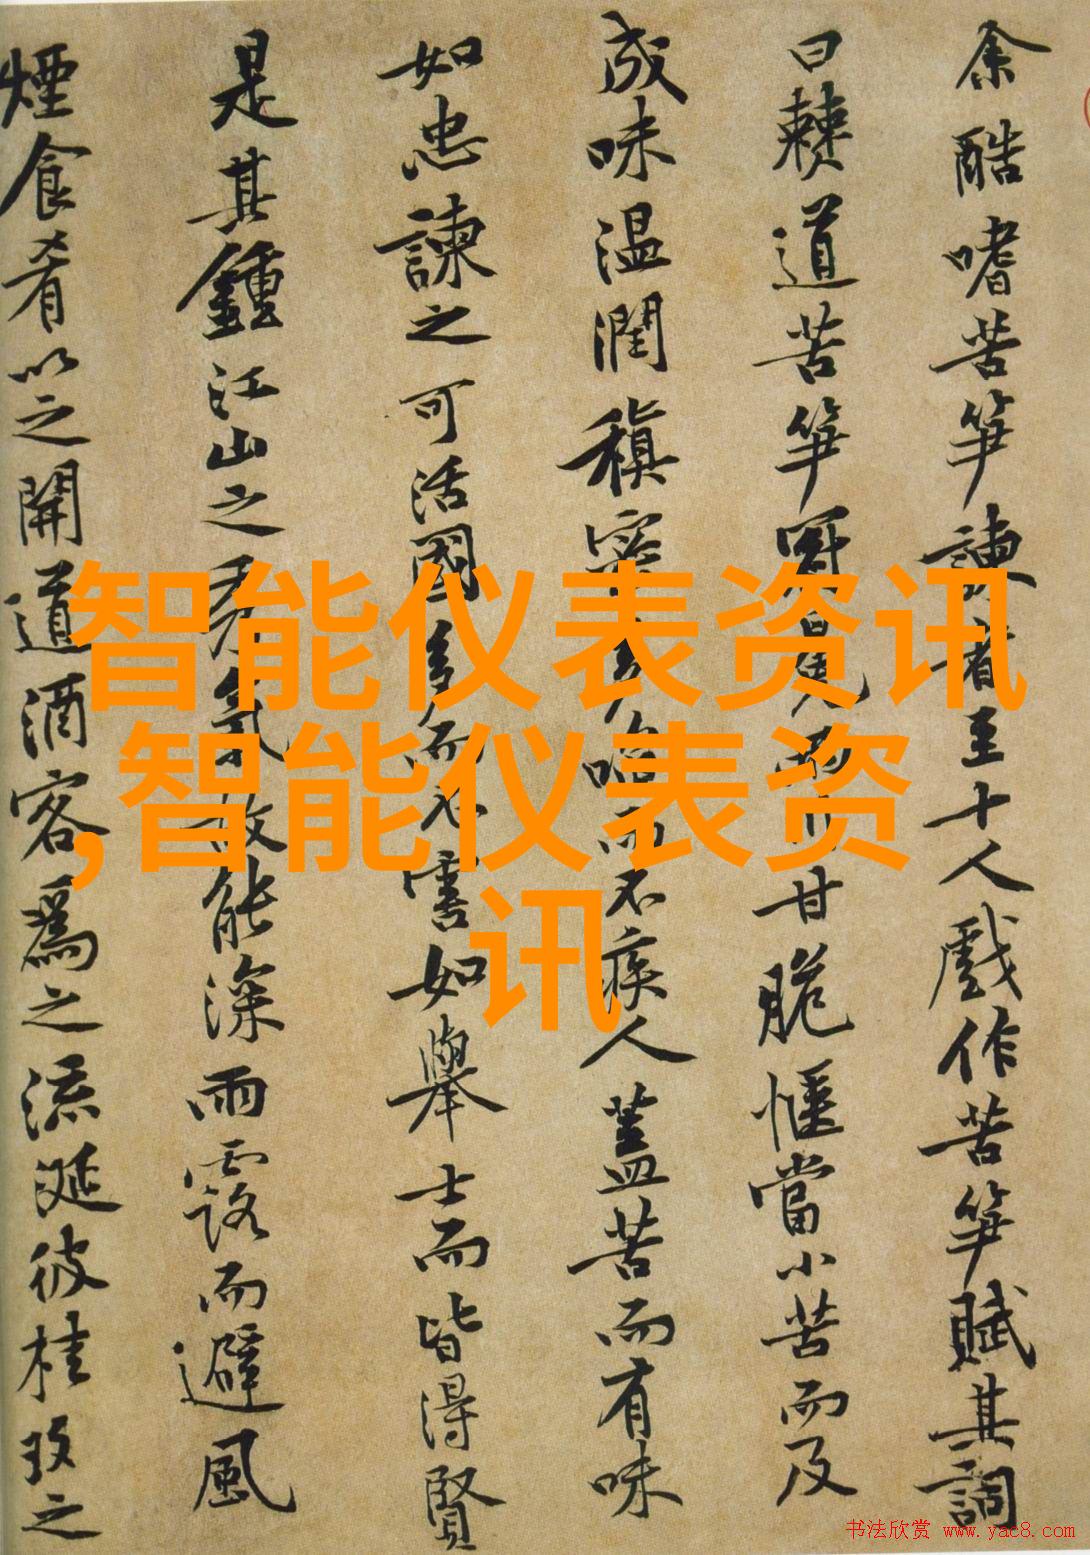 余酷嗜苦笋諫者至十人戲作苦笋賦其詞
曰僰道苦笋冠冕兩川甘脆愜當小苦而及
成味温潤稹密多啗而不疾人蓋苦而有味
如忠諫之可活國多而不害如舉士而皆得賢
是其鍾江山之秀氣故能深雨露而避風
煙食肴以之開道酒客為之流涎彼桂玫之
智能仪表资讯
,智能仪表资
讯
书法欣赏 www.yac8.com